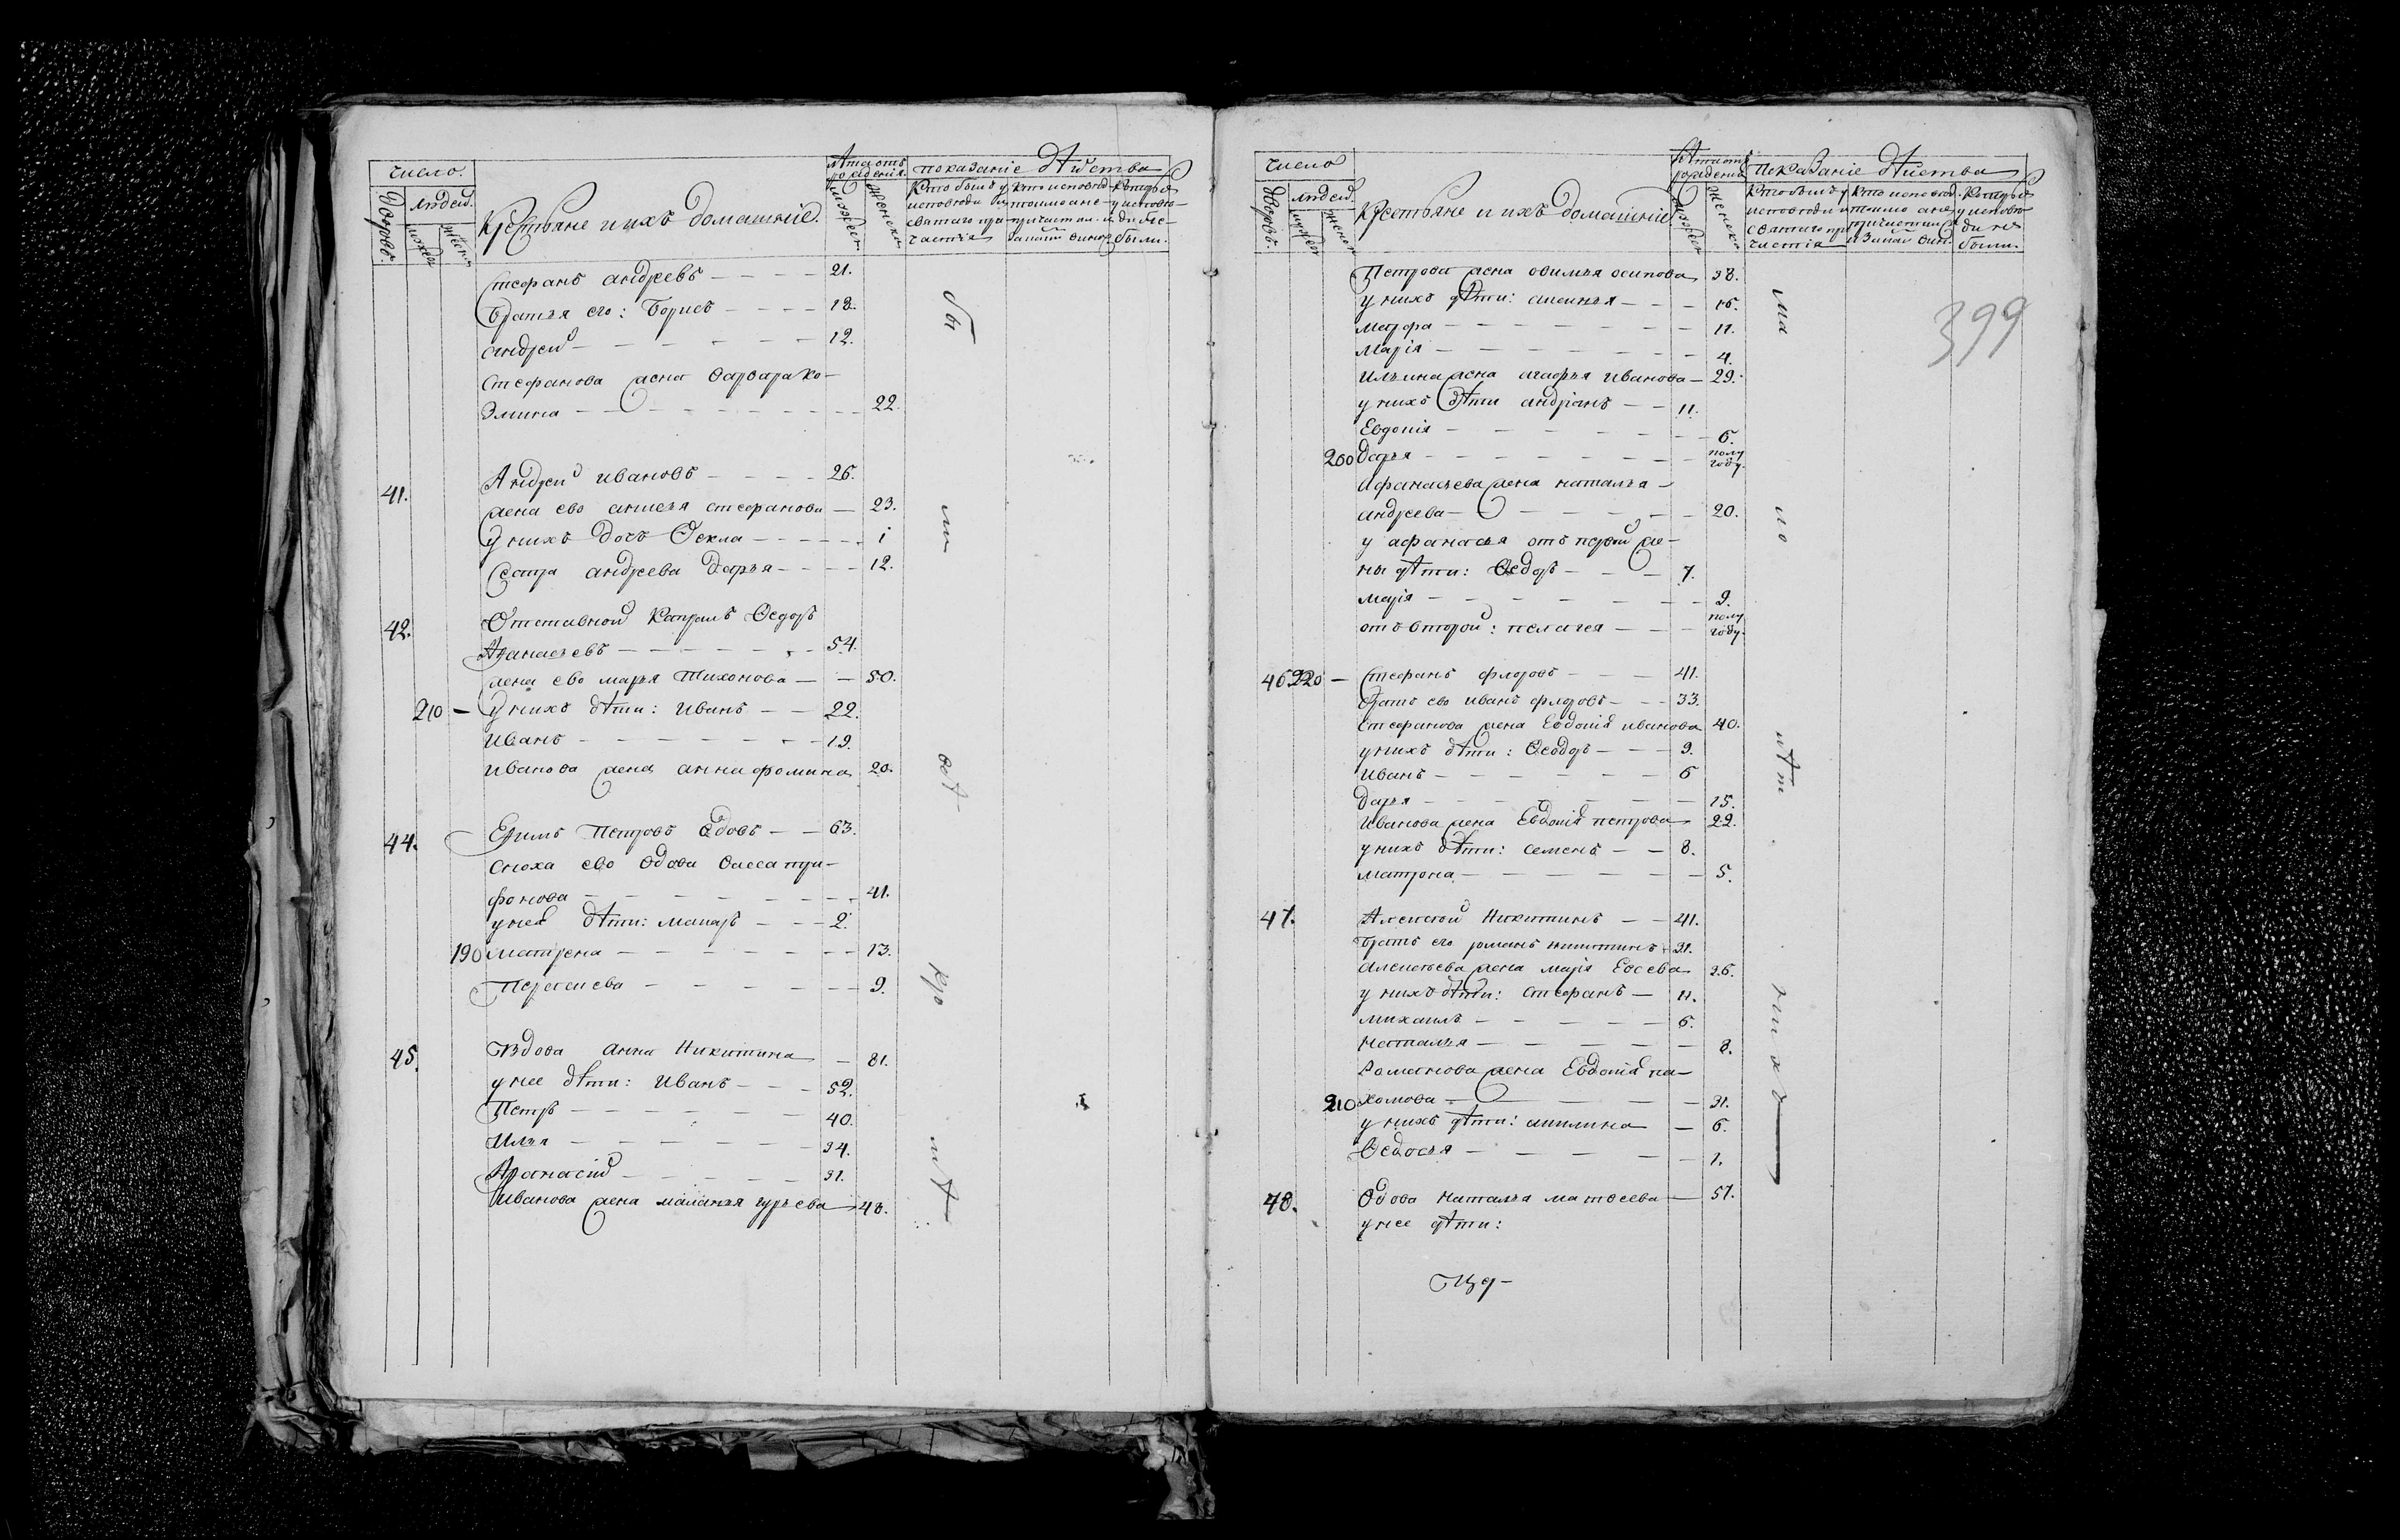 число.
Лѣта отъ рожденія.
показаніе дѣйства
Дворовъ.
людей.
мужес
женск
Крестьяне и ихъ домашніе.
мужеск
женски
Кто былъ у исповѣди и святаго причастія
Кто исповѣд. токмо а не причастил. и
Которые у исповѣди не были.
Стефанъ андреевъ 21.
братья его: Борисъ 18.
андрей 12.
Стефанова жена варвара ко-
змина 22.
41. Андрей ивановъ 26.
жена ево анисья стефанова 23.
у нихъ дочь Ѳекла 1
Сестра андреева Дарья 12.
42. Отставной Капралъ Ѳедоръ
Аѳанасьевъ 54.
жена ево марья Тихонова 50.
210 у нихъ дѣти: иванъ 22.
иванъ 19.
иванова жена анна фомина 20.
44. Ефимъ Петровъ вдовъ 63.
сноха ево вдова васса три-
фонова 41.
у нея дѣти: макаръ 2.
190 матрена 13.
45. Вдова анна Никитина 81.
у нее дѣти: иванъ 52.
Петръ 40.
Илья 34.
Аѳанасій 31.
Иванова жена маланья гурьева 48.
число
Лѣта отъ рожденія
показаніе дѣйства
Дворовъ.
людей.
мужес
женск
Крестьяне и ихъ домашніе
мужеск
женски
Кто былъ у исповѣди и святаго причастія
Кто исповѣд. токмо а не
Которые у исповѣди не были.
399
Петрова жена овимья осипова 38.
у нихъ дѣти: аксинья 16.
марфа 11.
Марія 4.
Ильина жена агафья иванова 29.
у нихъ дѣти андріанъ 11.
Евдокія 6.
200 дарья полу году.
Афанасьева жена наталья
андреева 20.
у афанасья отъ первой же-
ны дѣти: Ѳедоръ 7.
марія 9.
отъ второй: пелагея полу году.
46. 220 Стефанъ флоровъ 41.
братъ ево иванъ флоровъ 33.
Стефанова жена Евдокія иванова 40.
у нихъ дѣти: Ѳеодоръ 9.
иванъ 6
дарья 15.
Иванова жена Евдокія петрова 22.
у нихъ дѣти: семенъ 8.
матрона 5.
47. Алексѣй Никитинъ 41.
братъ его романъ никитинъ 31.
алексѣева жена марія Евсева 36.
у нихъ дѣти: стефанъ 11.
михаилъ 6.
наталья 8.
Романова жена Евдокія па-
210 хомова 31.
у нихъ дѣти: акилина 6.
Ѳедосья 1.
48. Вдова наталья матвеева 57.
у нее дѣти: